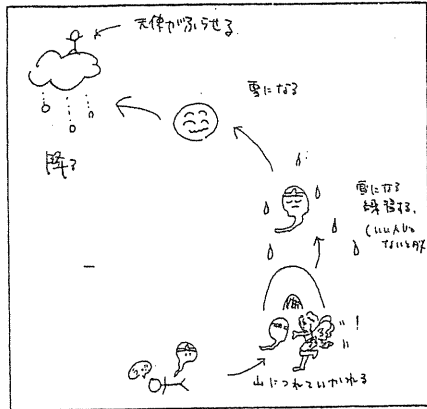 天使がふらせる
雪になる
降る
雪になる
練習する。
(いい人じゃ
ないとダメ
山につれていかれる